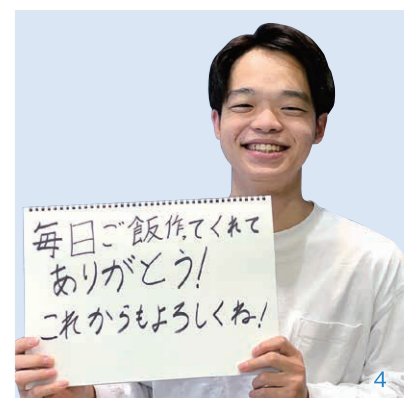 毎日ご飯作ってくれて
ありがとう!
これからもよろしくね!
4